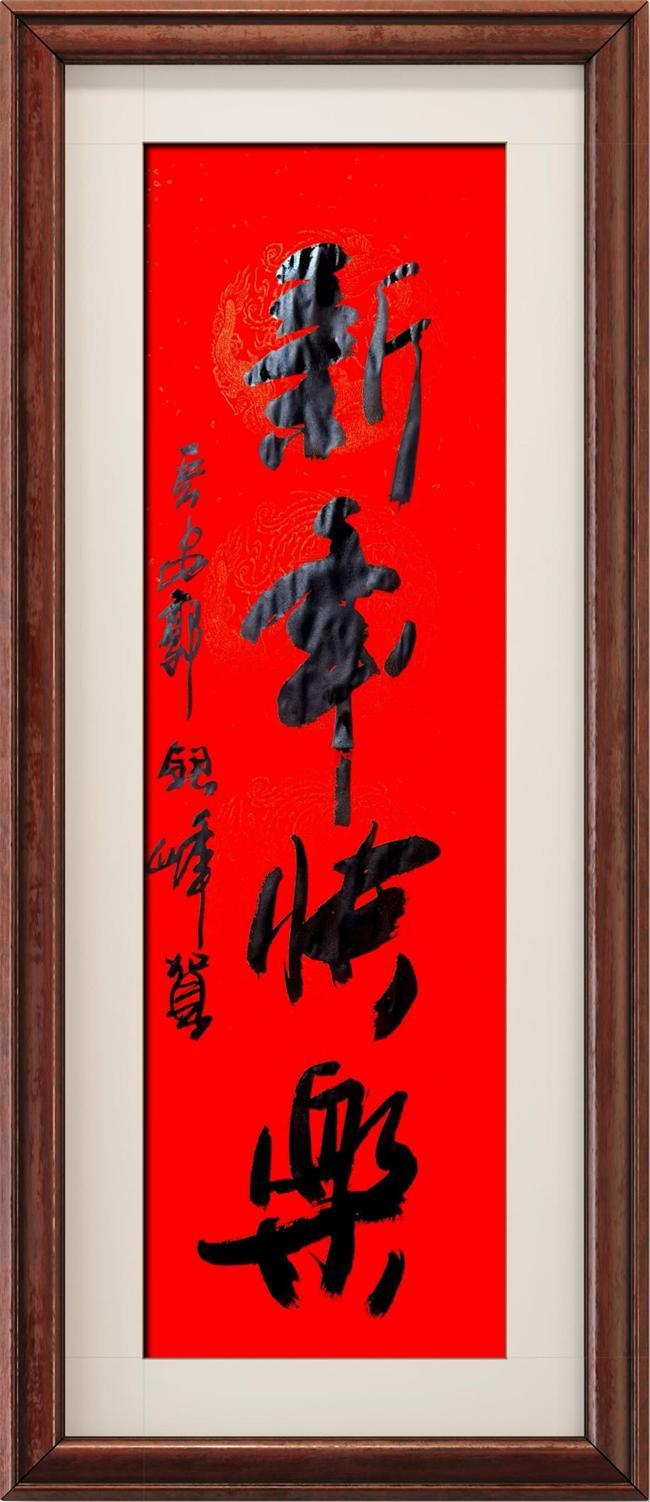 新年快樂
郭銀峰賀